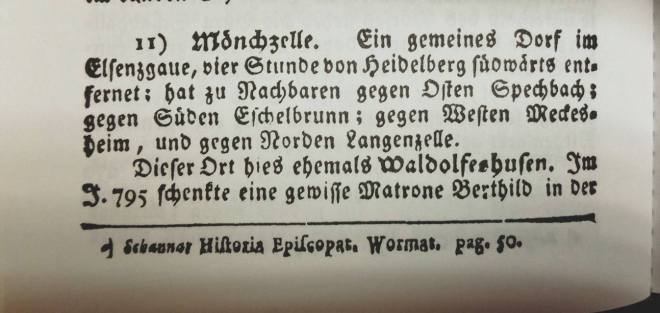 11) Mönchzelle. Ein gemeines Dorf im
Elsenzgaue, vier Stunde von Heidelberg südwärts ent-
fernet; hat zu Nachbaren gegen Osten Spechbach;
gegen Süden Eschelbrunn; gegen Westen Meckes-
heim, und gegen Norden Langenzelle.
Dieser Ort hies ehemals Waldolfeshusen. Im
J. 795 schenkte eine gewisse Matrone Berthild in der
Schannat Historia Episcopat. Wormat. pag. 50.